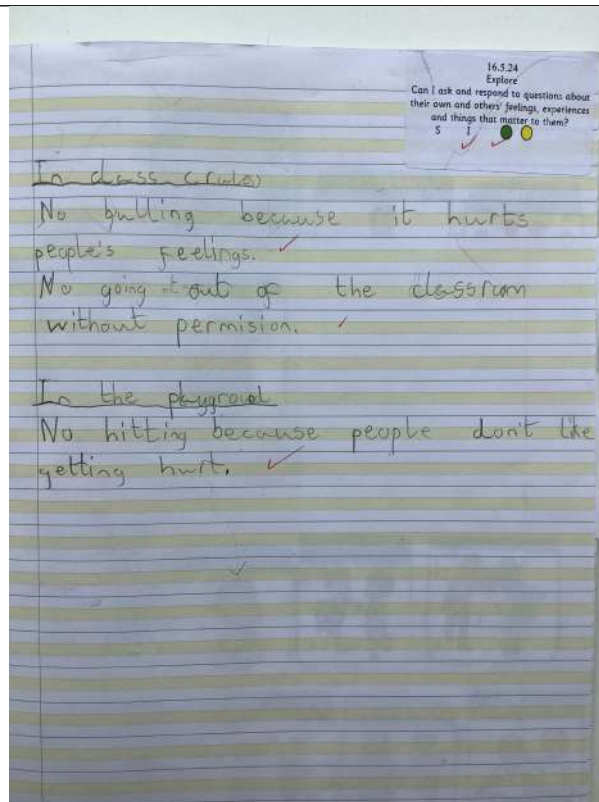 16.5.24
Explore
Can I ask and respond to questions about
their own and others' feelings, experiences
and things that matter to them?
S I
In class (rules)
No bulling because it hurts
people's feelings.
No going out of the classrom
without permision.
In the playgroud
No hitting because people don't like
getting hurt.